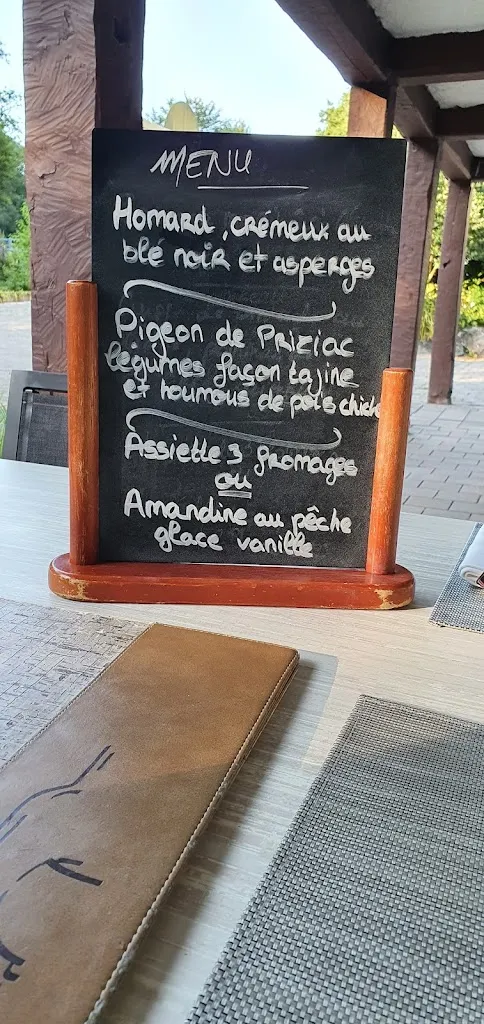 MENU
Homard, crémeux au
blé noir et asperges
Pigeon de PRIZIAC
légumes façon tajine
et houmous de pois chich
Assiette 3 fromages
ou
Amandine au pêche
glace vanille